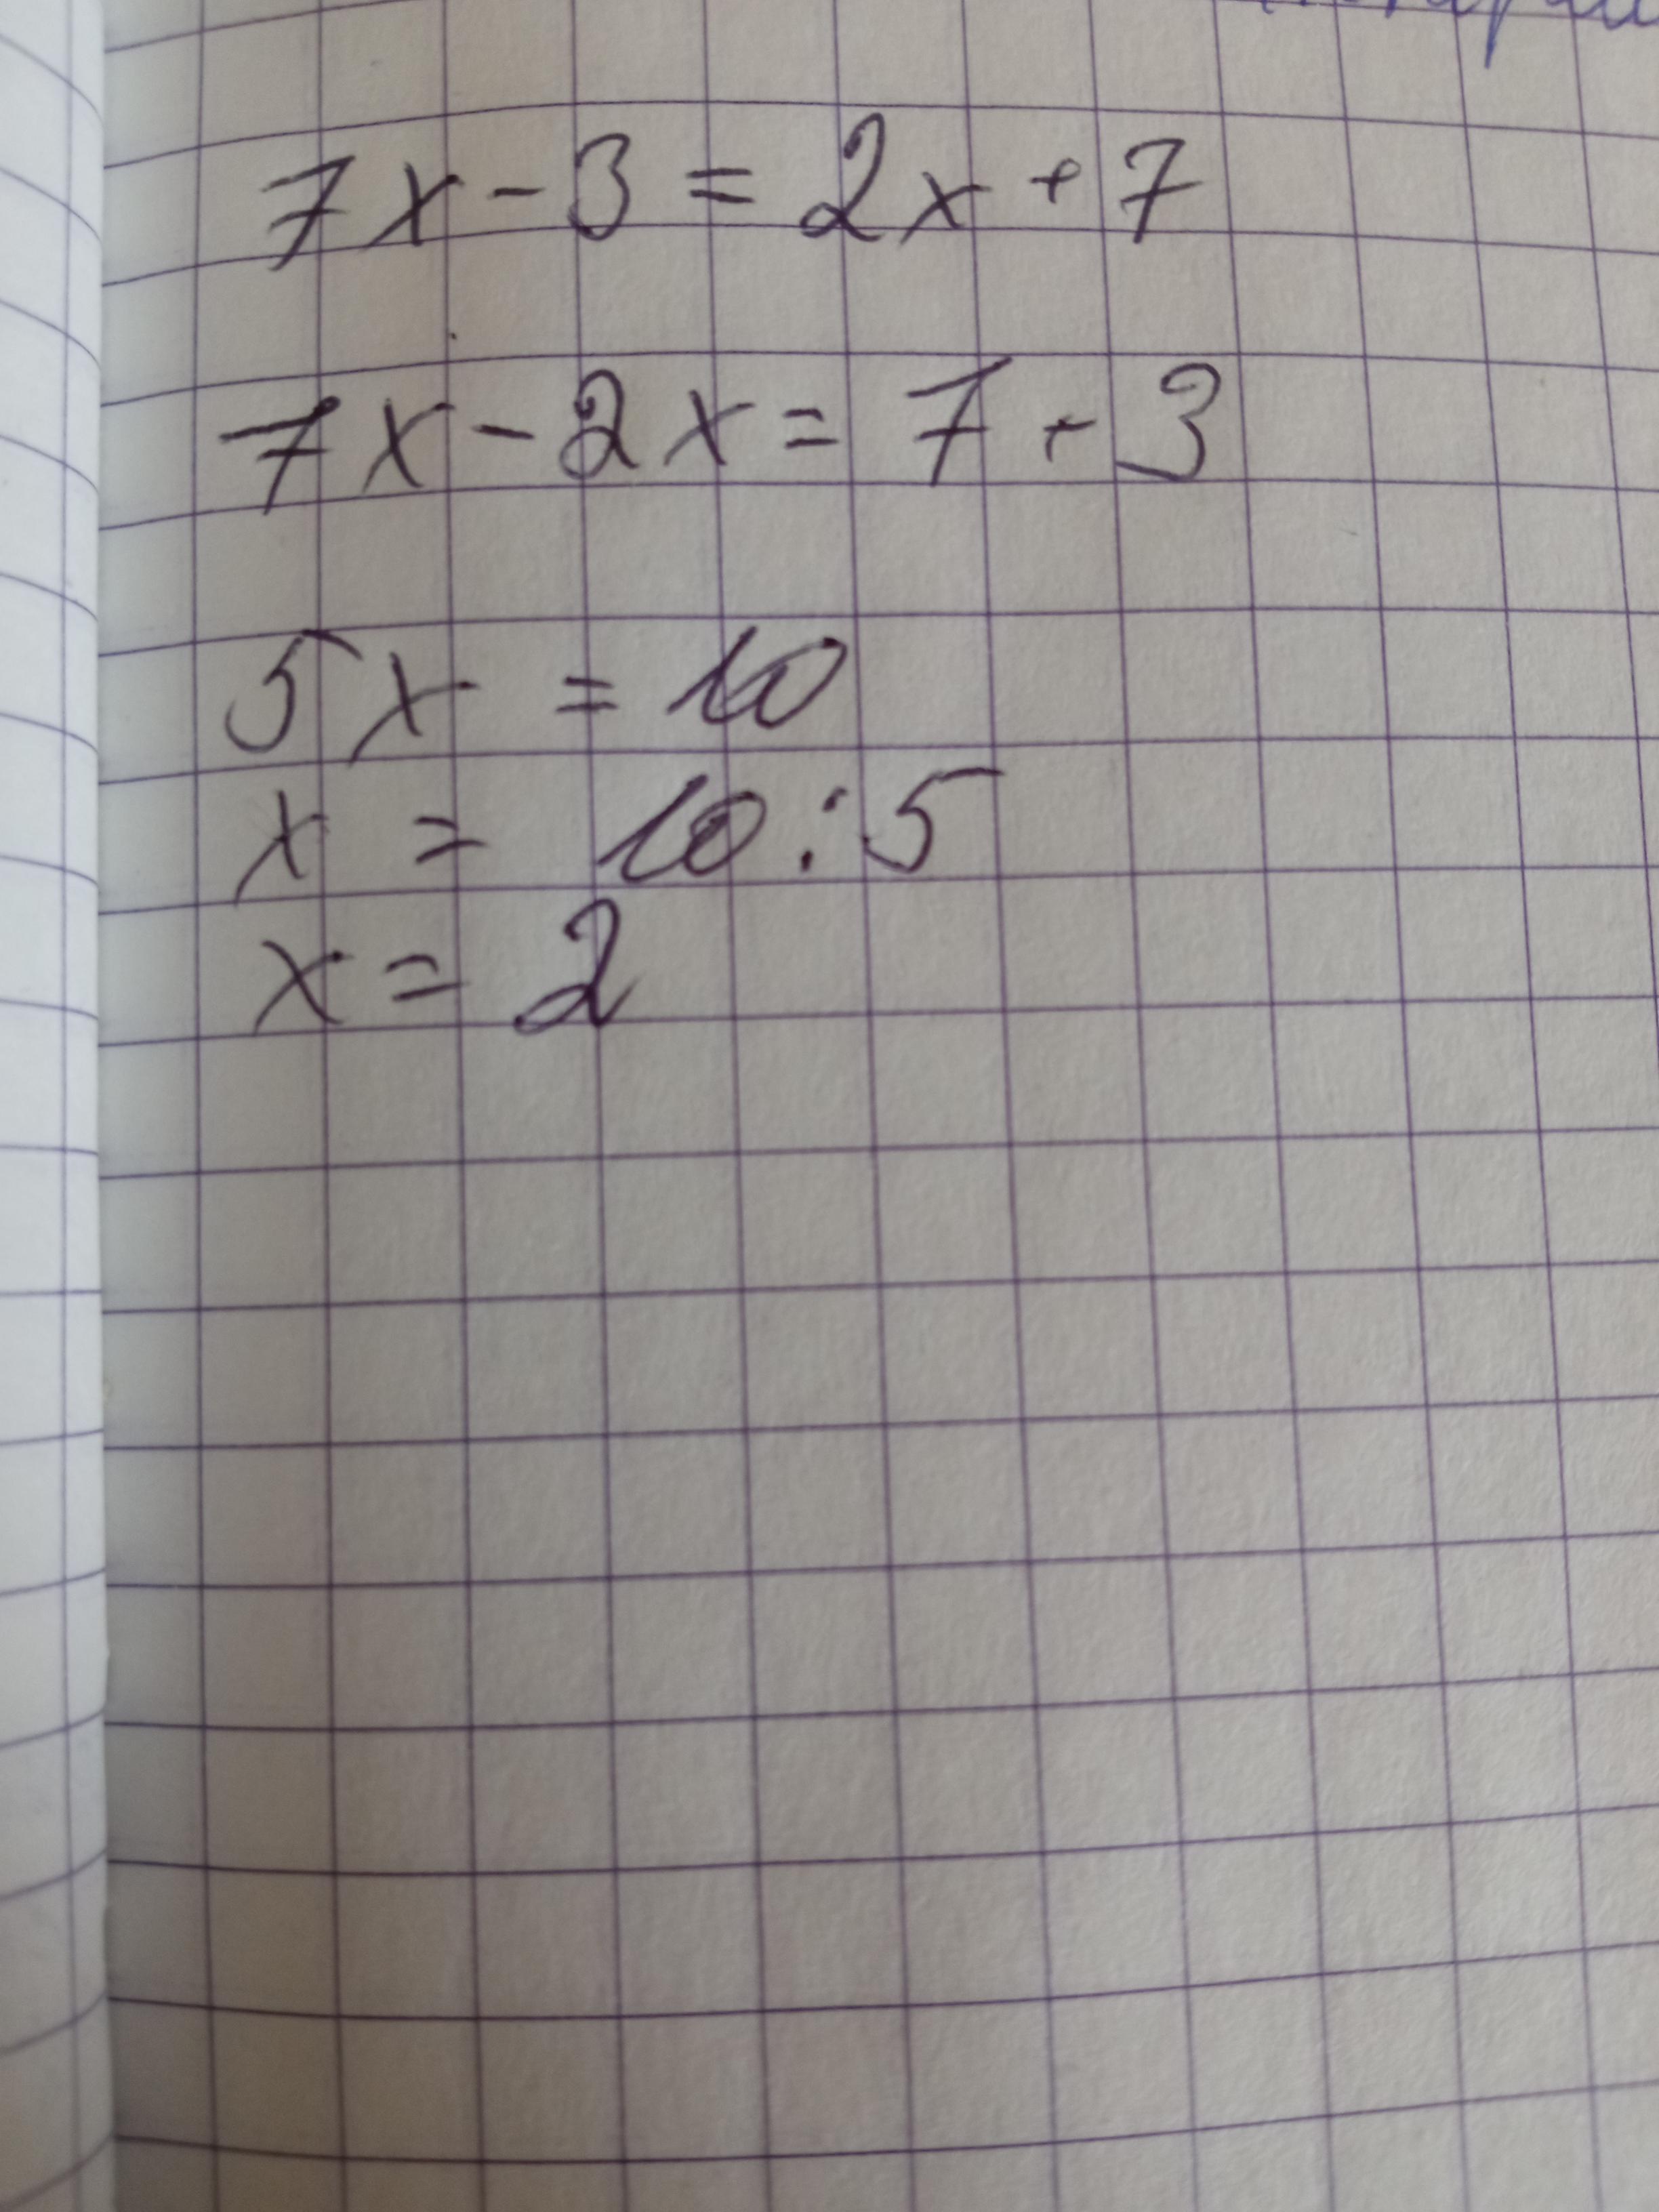 7x - 3 = 2x + 7
7x - 2x = 7 + 3
5x = 10
x = 10 : 5
x = 2